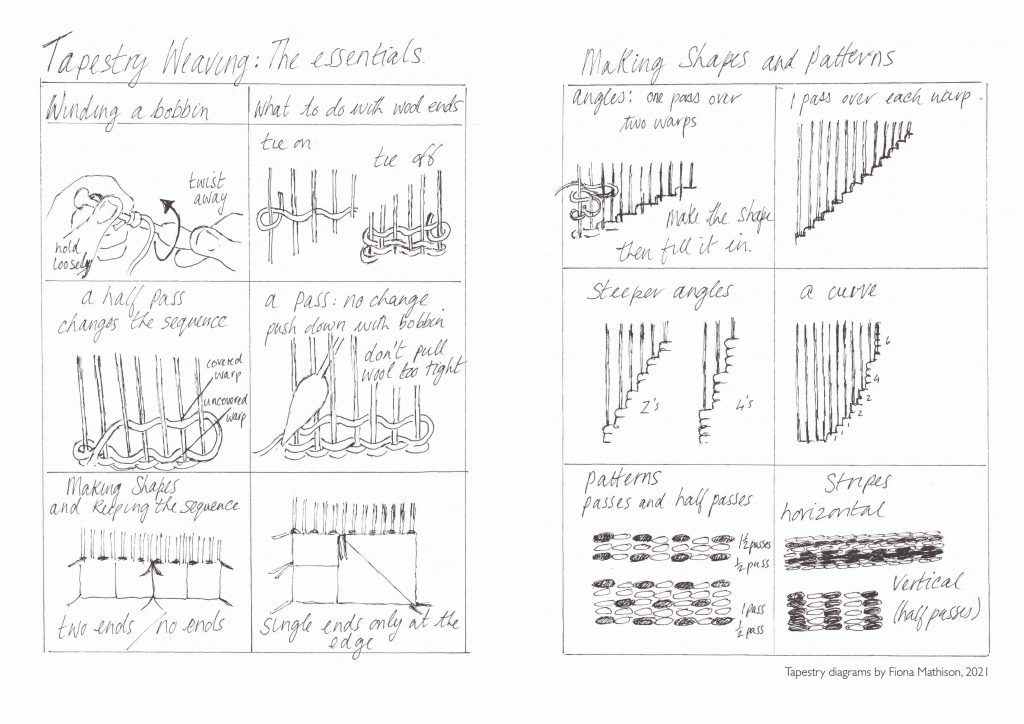 Tapestry Weaving: The essentials.
Winding a bobbin
twist
away
hold
loosely
What to do with wool ends
tie on
tie off
a half pass
changes the sequence
covered
warp
uncovered
warp
a pass: no change
push down with bobbin
don't pull
wool too tight
Making Shapes
and keeping the sequence
two ends / no ends
single ends only at the
edge
Making Shapes and Patterns
angles: one pass over
two warps
Make the shape
then fill it in.
1 pass over each warp.
Steeper angles
2's
4's
a curve
6
4
2
2
1
1
Patterns
passes and half passes
1½ passes
½ pass
1 pass
½ pass
Stripes
horizontal
Vertical
(half passes)
Tapestry diagrams by Fiona Mathison, 2021